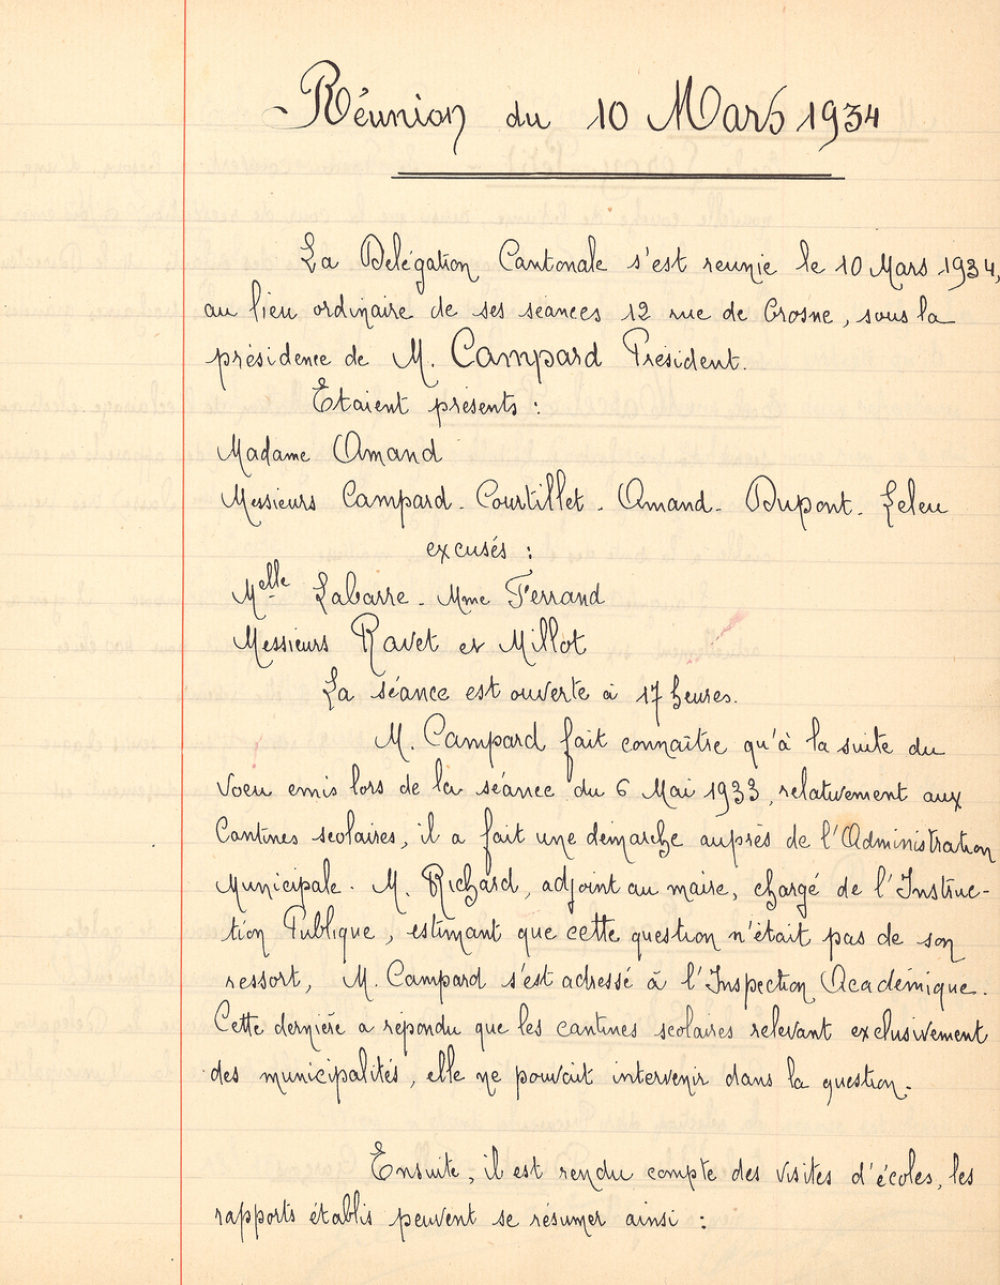 Réunion du 10 Mars 1934
La Délégation Cantonale s'est reunie le 10 Mars 1934,
au lieu ordinaire de ses séances 12 rue de Crosne, sous la
présidence de M. Campard Président.
Etaient présents :
Madame Amand
Messieurs Campard - Courtillet - Amand - Dupont - Leleu
excusés :
Melle Labarre - Mme Ferrand
Messieurs Ravet et Millot
La séance est ouverte à 17 heures.
M. Campard fait connaître qu'à la suite du
voeu emis lors de la séance du 6 Mai 1933, relativement aux
Cantines scolaires, il a fait une démarche auprès de l'Administration
Municipale. M. Richard, adjoint au maire, chargé de l'Instruc-
tion Publique, estimant que cette question n'était pas de son
ressort, M. Campard s'est adressé à l'Inspection Académique.
Cette dernière a répondu que les cantines scolaires relevant exclusivement
des municipalités, elle ne pouvait intervenir dans la question.
Ensuite, il est rendu compte des visites d'écoles, les
rapports établis peuvent se résumer ainsi :